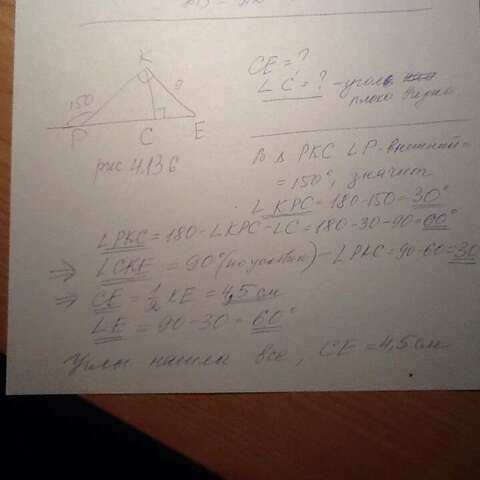 K
150
9
P
C
E
рис 4.136
CE = ?
∠C = ? - угол
плохо видно
В Δ PKC ∠P - внешний =
= 150°, значит
∠KPC = 180-150 = 30°
∠PKC = 180 - ∠KPC - ∠C = 180-30-90 = 60°
⇒ ∠CKE = 90° (по условию) - ∠PKC = 90-60 = 30
⇒ CE = 1/2 KE = 4,5 см
∠E = 90-30 = 60°
Углы нашли все, CE = 4,5 см